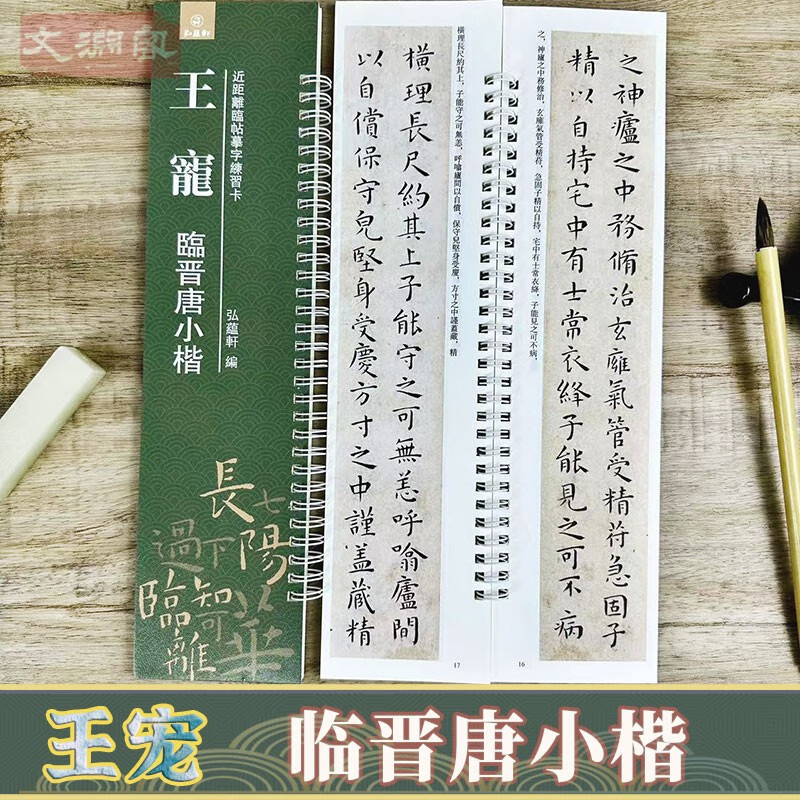 文渊阁
弘蘊軒
近距離臨帖摹字練習卡
王寵
臨晋唐小楷
弘蘊軒 編
長
陽
過下
臨
離
橫理長尺約其上，子能守之可無恙，呼噏廬間以自償，保守兒堅身受慶，方寸之中謹蓋藏，精
橫理長尺約其上子能守之可無恙呼噏廬間
以自償保守兒堅身受慶方寸之中謹盖藏精
17
之，神廬之中務修治，玄廱氣管受精苻，急固子精以自持，宅中有士常衣絳，子能見之可不病，
之神廬之中務脩治玄廱氣管受精苻急固子
精以自持宅中有士常衣絳子能見之可不病
16
王宠 临晋唐小楷